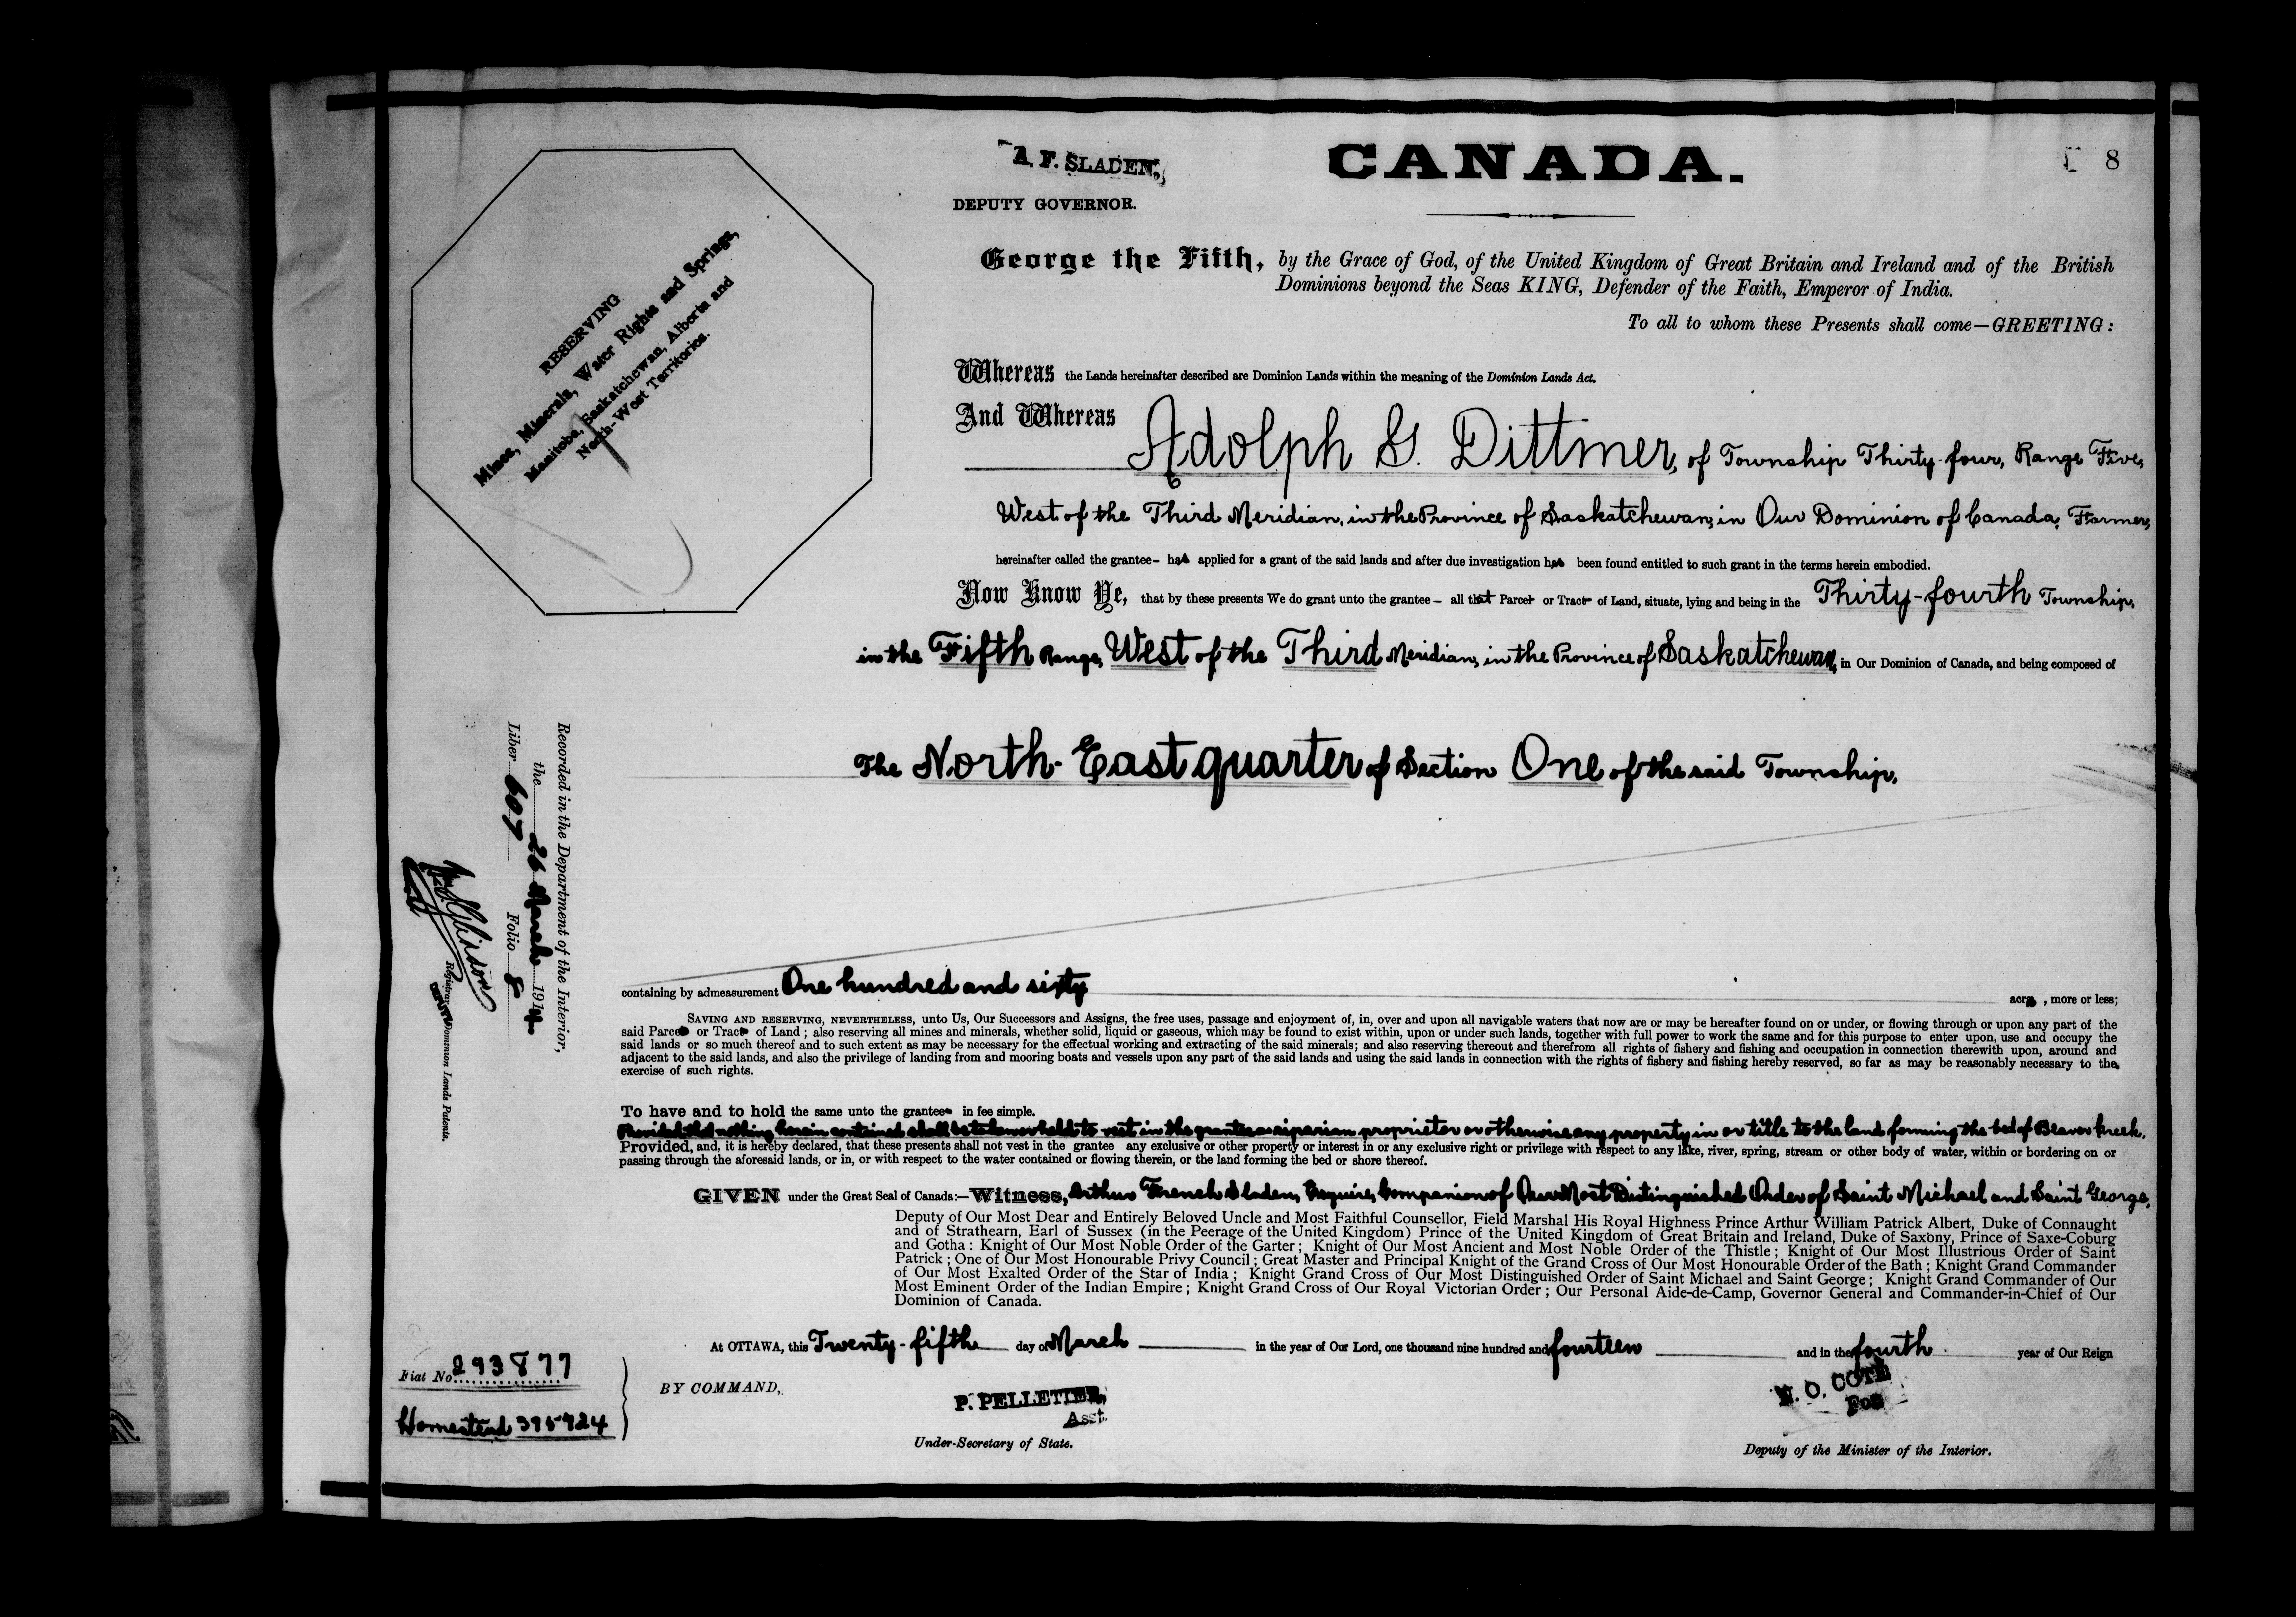 A. F. SLADEN,
DEPUTY GOVERNOR.
CANADA.
8
George the Fifth, by the Grace of God, of the United Kingdom of Great Britain and Ireland and of the British
Dominions beyond the Seas KING, Defender of the Faith, Emperor of India.
To all to whom these Presents shall come—GREETING:
RESERVING
Mines, Minerals, Water Rights and Springs,
Manitoba, Saskatchewan, Alberta and
North-West Territories.
Whereas the Lands hereinafter described are Dominion Lands within the meaning of the Dominion Lands Act.
And Whereas
Adolph G. Dittmer, of Township Thirty-four, Range Five,
West of the Third Meridian, in the Province of Saskatchewan, in Our Dominion of Canada, Farmer,
hereinafter called the grantee– has applied for a grant of the said lands and after due investigation has been found entitled to such grant in the terms herein embodied.
Now Know Ye, that by these presents We do grant unto the grantee – all that Parcel or Tract of Land, situate, lying and being in the Thirty-fourth Township,
in the Fifth Range, West of the Third Meridian, in the Province of Saskatchewan, in Our Dominion of Canada, and being composed of
The North-East quarter of Section One of the said Township,
Recorded in the Department of the Interior,
the 26 March 1914
Liber 607 Folio 8
Registrar Dominion Lands Patents.
DEPUTY
containing by admeasurement One hundred and sixty acres, more or less;
SAVING AND RESERVING, NEVERTHELESS, unto Us, Our Successors and Assigns, the free uses, passage and enjoyment of, in, over and upon all navigable waters that now are or may be hereafter found on or under, or flowing through or upon any part of the
said Parcel or Tract of Land; also reserving all mines and minerals, whether solid, liquid or gaseous, which may be found to exist within, upon or under such lands, together with full power to work the same and for this purpose to enter upon, use and occupy the
said lands or so much thereof and to such extent as may be necessary for the effectual working and extracting of the said minerals; and also reserving thereout and therefrom all rights of fishery and fishing and occupation in connection therewith upon, around and
adjacent to the said lands, and also the privilege of landing from and mooring boats and vessels upon any part of the said lands and using the said lands in connection with the rights of fishery and fishing hereby reserved, so far as may be reasonably necessary to the
exercise of such rights.
To have and to hold the same unto the grantee in fee simple.
Provided that nothing herein contained shall be taken or held to vest in the grantee as riparian proprietor or otherwise any property in or title to the land forming the bed of Beaver Creek.
Provided, and, it is hereby declared, that these presents shall not vest in the grantee any exclusive or other property or interest in or any exclusive right or privilege with respect to any lake, river, spring, stream or other body of water, within or bordering on or
passing through the aforesaid lands, or in, or with respect to the water contained or flowing therein, or the land forming the bed or shore thereof.
GIVEN under the Great Seal of Canada:—Witness, Arthur French Sladen, Esquire, Companion of Our Most Distinguished Order of Saint Michael and Saint George,
Deputy of Our Most Dear and Entirely Beloved Uncle and Most Faithful Counsellor, Field Marshal His Royal Highness Prince Arthur William Patrick Albert, Duke of Connaught
and of Strathearn, Earl of Sussex (in the Peerage of the United Kingdom) Prince of the United Kingdom of Great Britain and Ireland, Duke of Saxony, Prince of Saxe-Coburg
and Gotha: Knight of Our Most Noble Order of the Garter; Knight of Our Most Ancient and Most Noble Order of the Thistle; Knight of Our Most Illustrious Order of Saint
Patrick; One of Our Most Honourable Privy Council; Great Master and Principal Knight of the Grand Cross of Our Most Honourable Order of the Bath; Knight Grand Commander
of Our Most Exalted Order of the Star of India; Knight Grand Cross of Our Most Distinguished Order of Saint Michael and Saint George; Knight Grand Commander of Our
Most Eminent Order of the Indian Empire; Knight Grand Cross of Our Royal Victorian Order; Our Personal Aide-de-Camp, Governor General and Commander-in-Chief of Our
Dominion of Canada.
At OTTAWA, this Twenty-fifth day of March in the year of Our Lord, one thousand nine hundred and fourteen and in the fourth year of Our Reign
Fiat No. 293877
Homestead 395924
BY COMMAND,
P. PELLETIER,
Asst.
Under-Secretary of State.
N. O. COTE
For
Deputy of the Minister of the Interior.